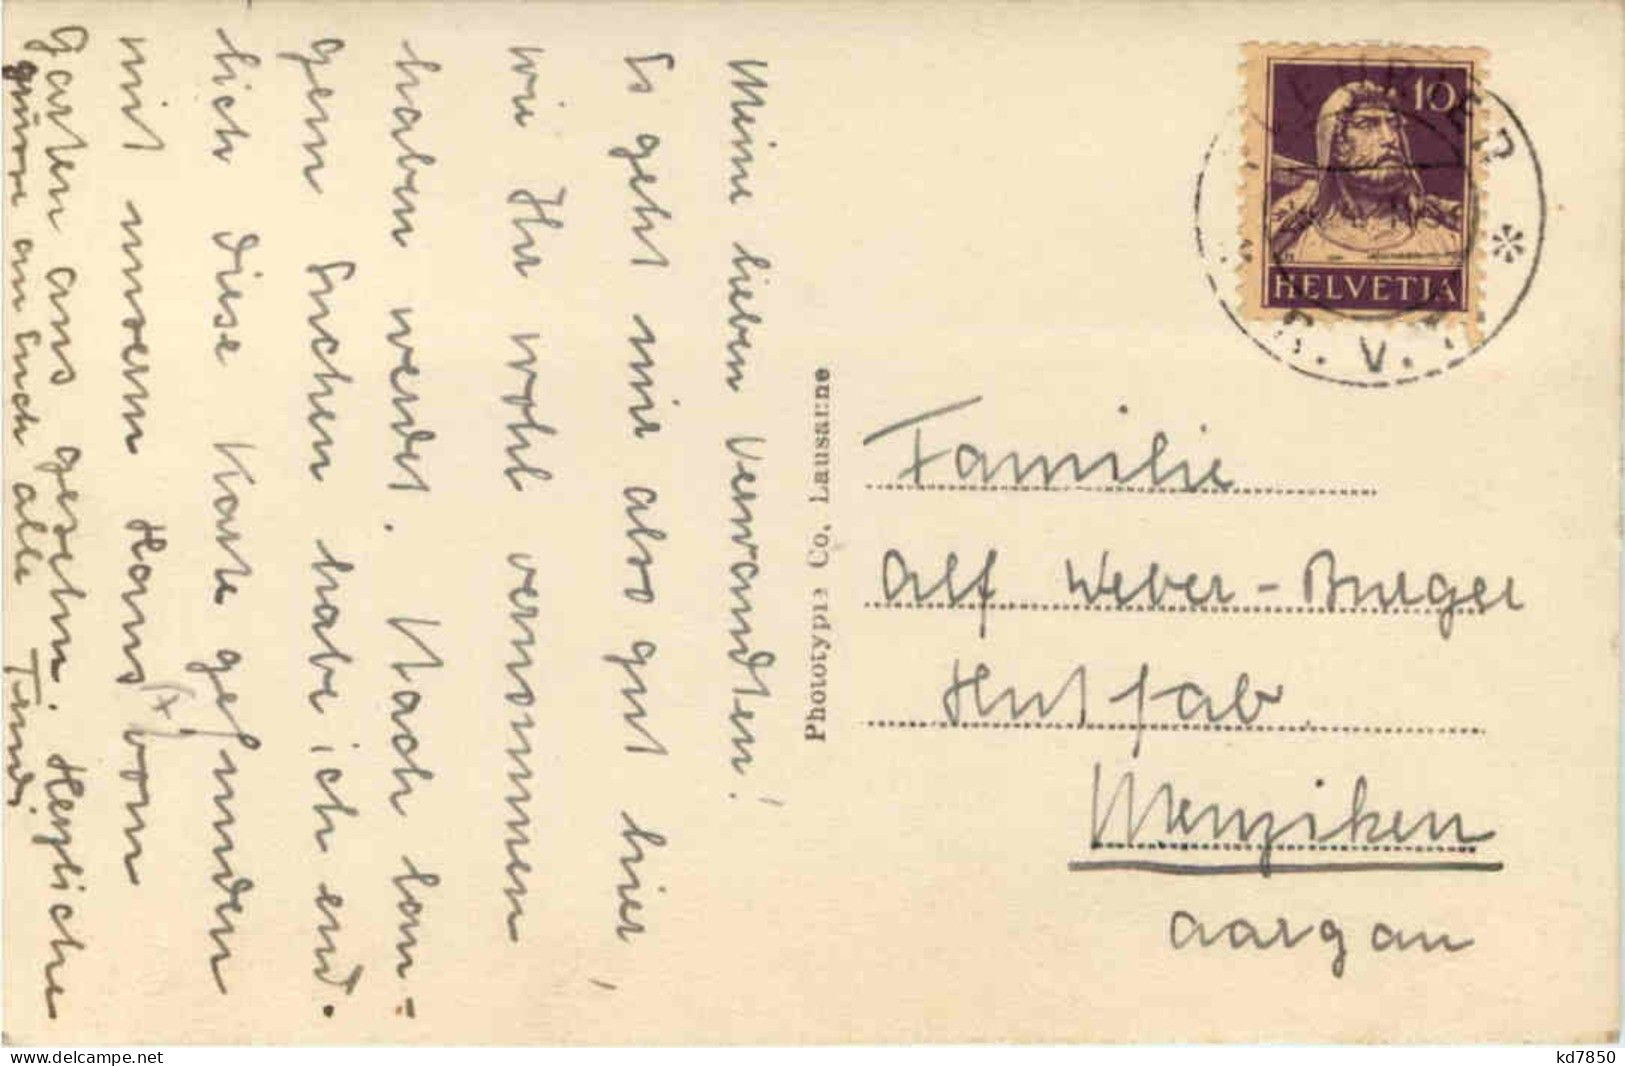 Meine lieben Verwandten!
Es geht mir also gut hier,
wie Ihr wohl vernommen
haben werdet. Nach lan-
gem Suchen habe ich end-
lich diese Karte gefunden
mit unserm Haus (x) vom
Garten aus gesehen. Herzliche
Grüsse an Euch alle
Phototypie Co. Lausanne
10
HELVETIA
V.
Familie
Alf Weber-Burger
Hutfab.
Menziken
Aargau
kd7850